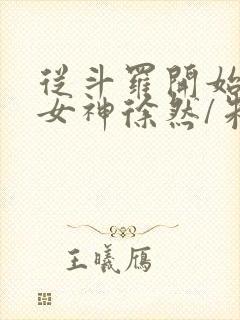 從斗羅開始
女神徐然/
王曦雁